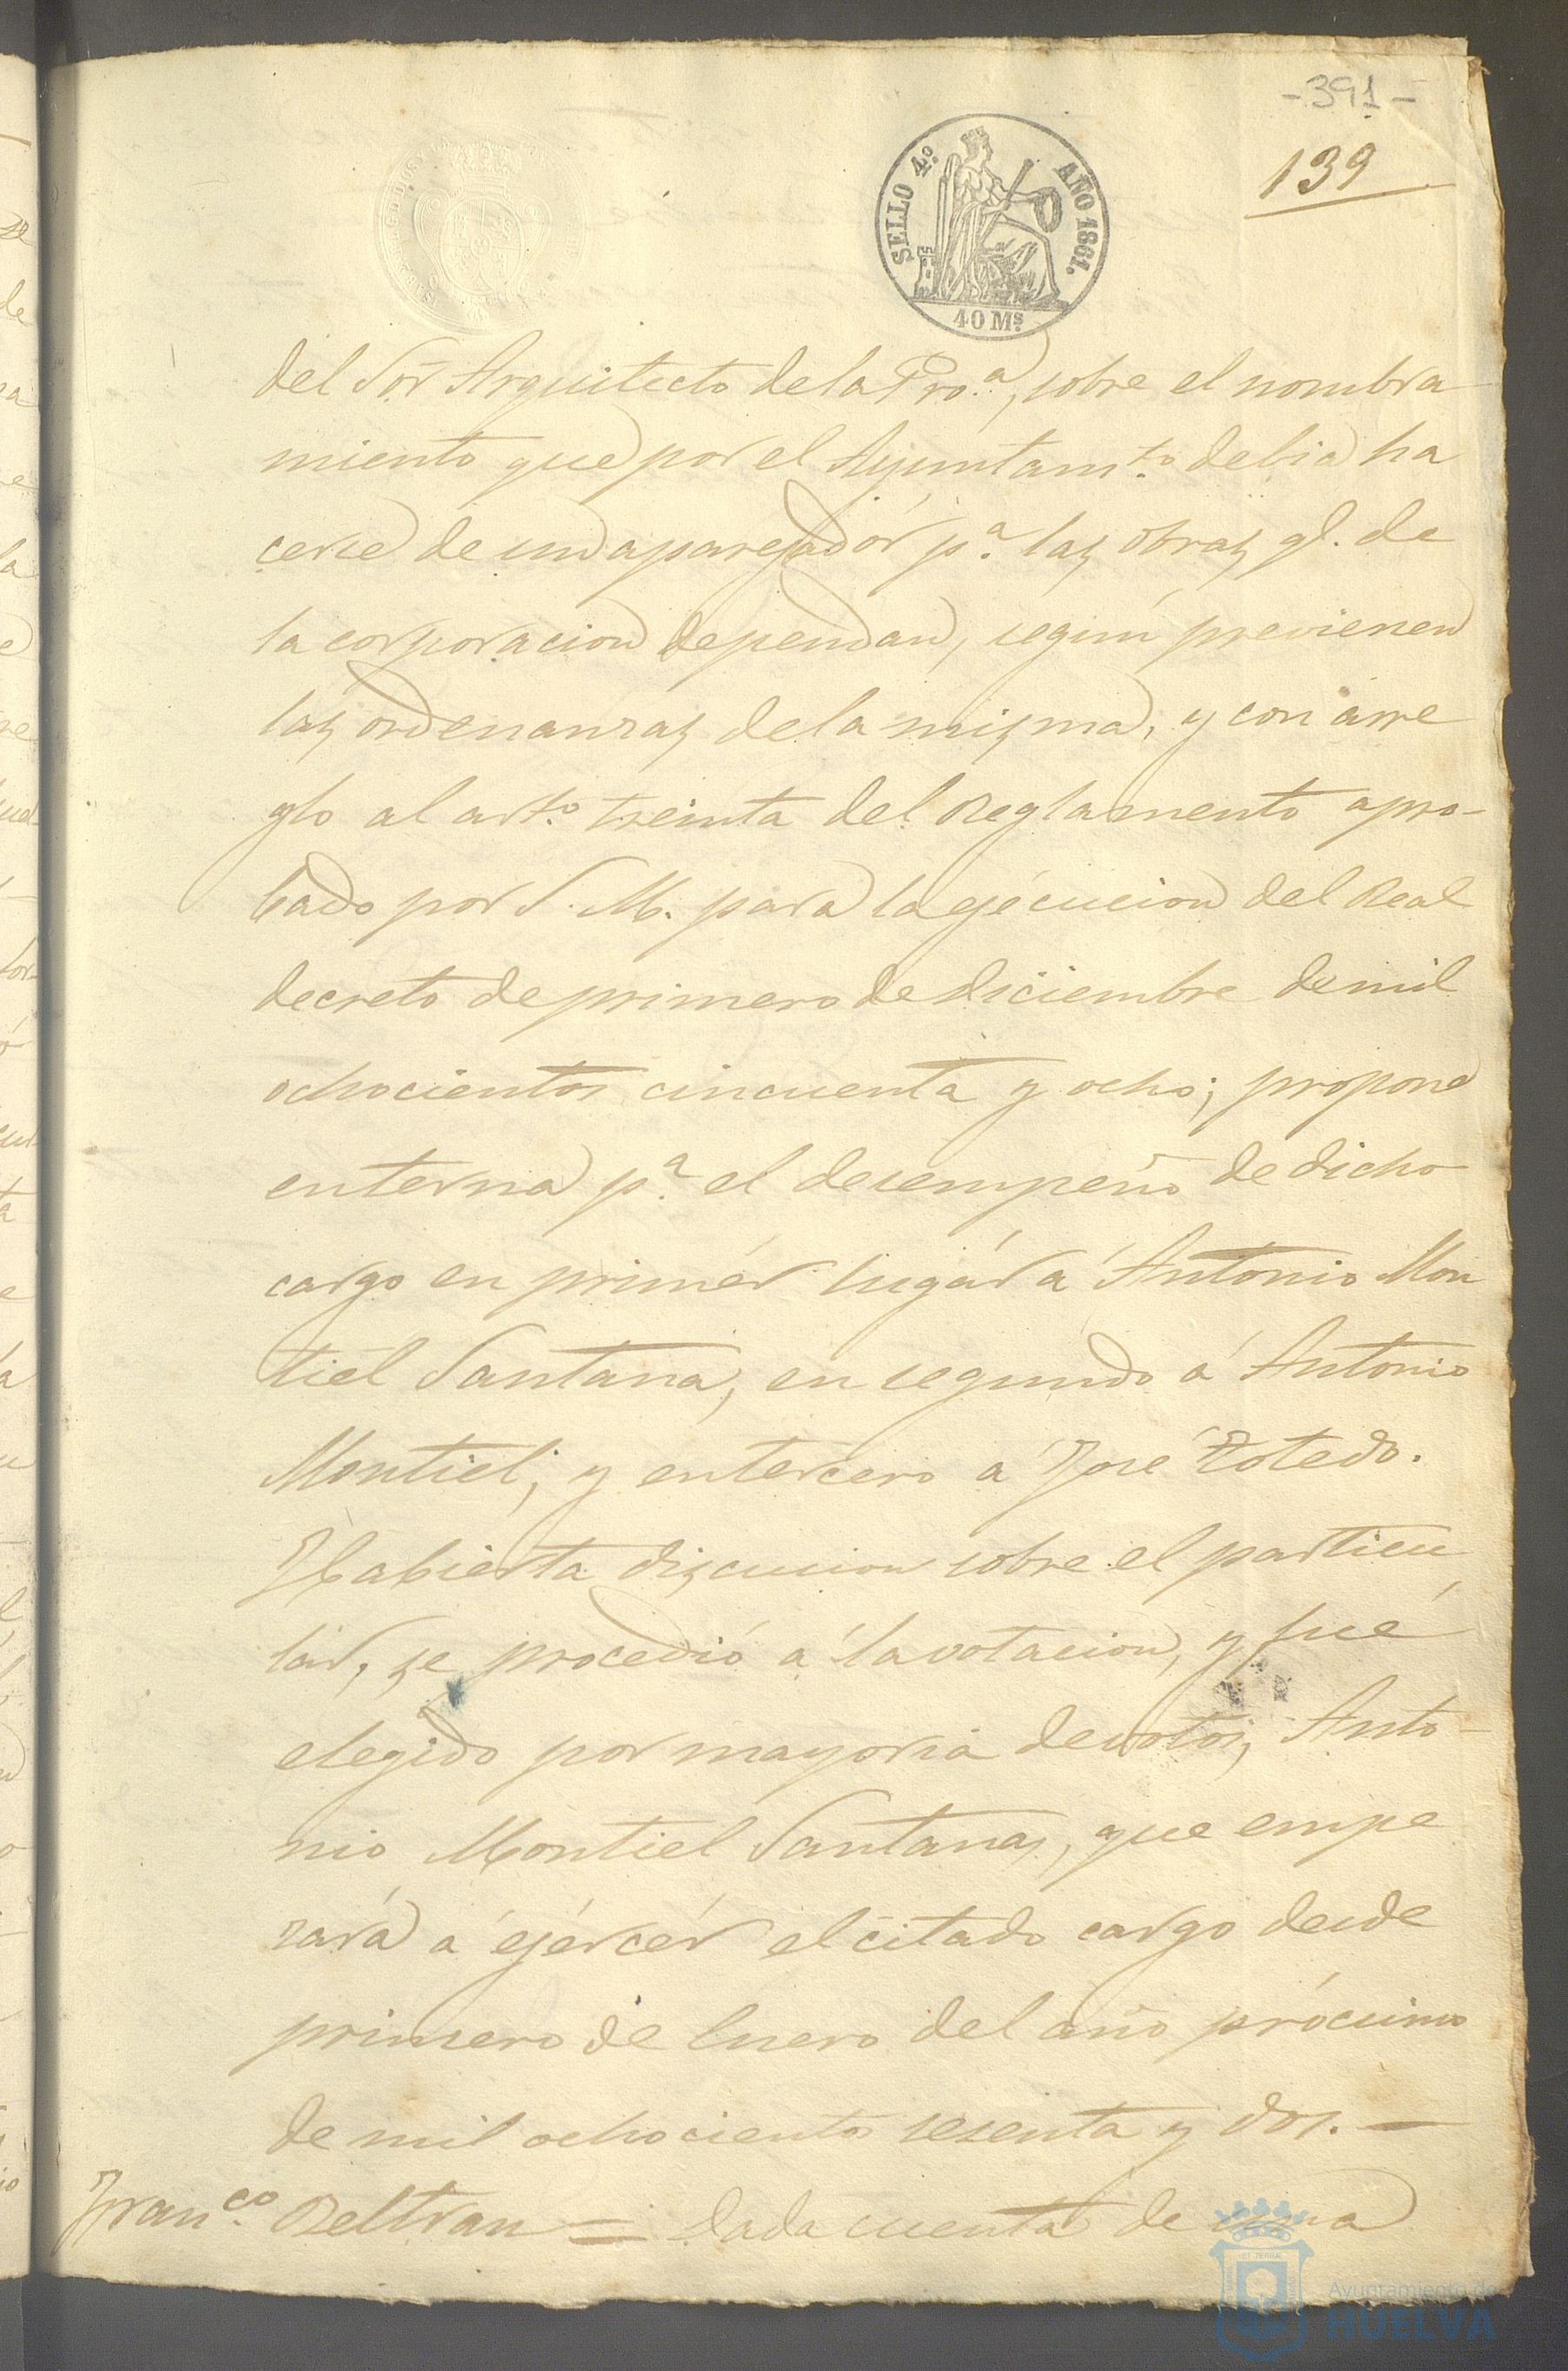 -391-
139
SELLO 4º. AÑO 1861.
40 Ms.
del Sor. Arquitecto de la Pro.ª, sobre el nombra
miento que por el Ayuntam.to debia ha
cerse de un aparejadór p.ª las obras q.e de
la corporacion dependan, segun previenen
las ordenanzas de la misma, y con arre
glo al art.o treinta del Reglamento apro-
bado por S. M. para la ejecucion del Real
decreto de primero de Diciembre de mil
ochocientos cincuenta y ocho; propone
en terna p.ª el desempeño de dicho
cargo en primér lugár á Antonio Mon
tiel Santana, en segundo á Antonio
Montiel; y en tercero á José Toledo.
Habierta discusion sobre el particu
lár, se procedió á la votacion, y fué
elegido por mayoria de votos, Anto-
nio Montiel Santana, que empe
zará á ejércér el citado cargo desde
primero de Enero del año prócsimo
de mil ochocientos sesenta y dos. —
Fran.co Beltran = Dada cuenta de una
Ayuntamiento de
HUELVA